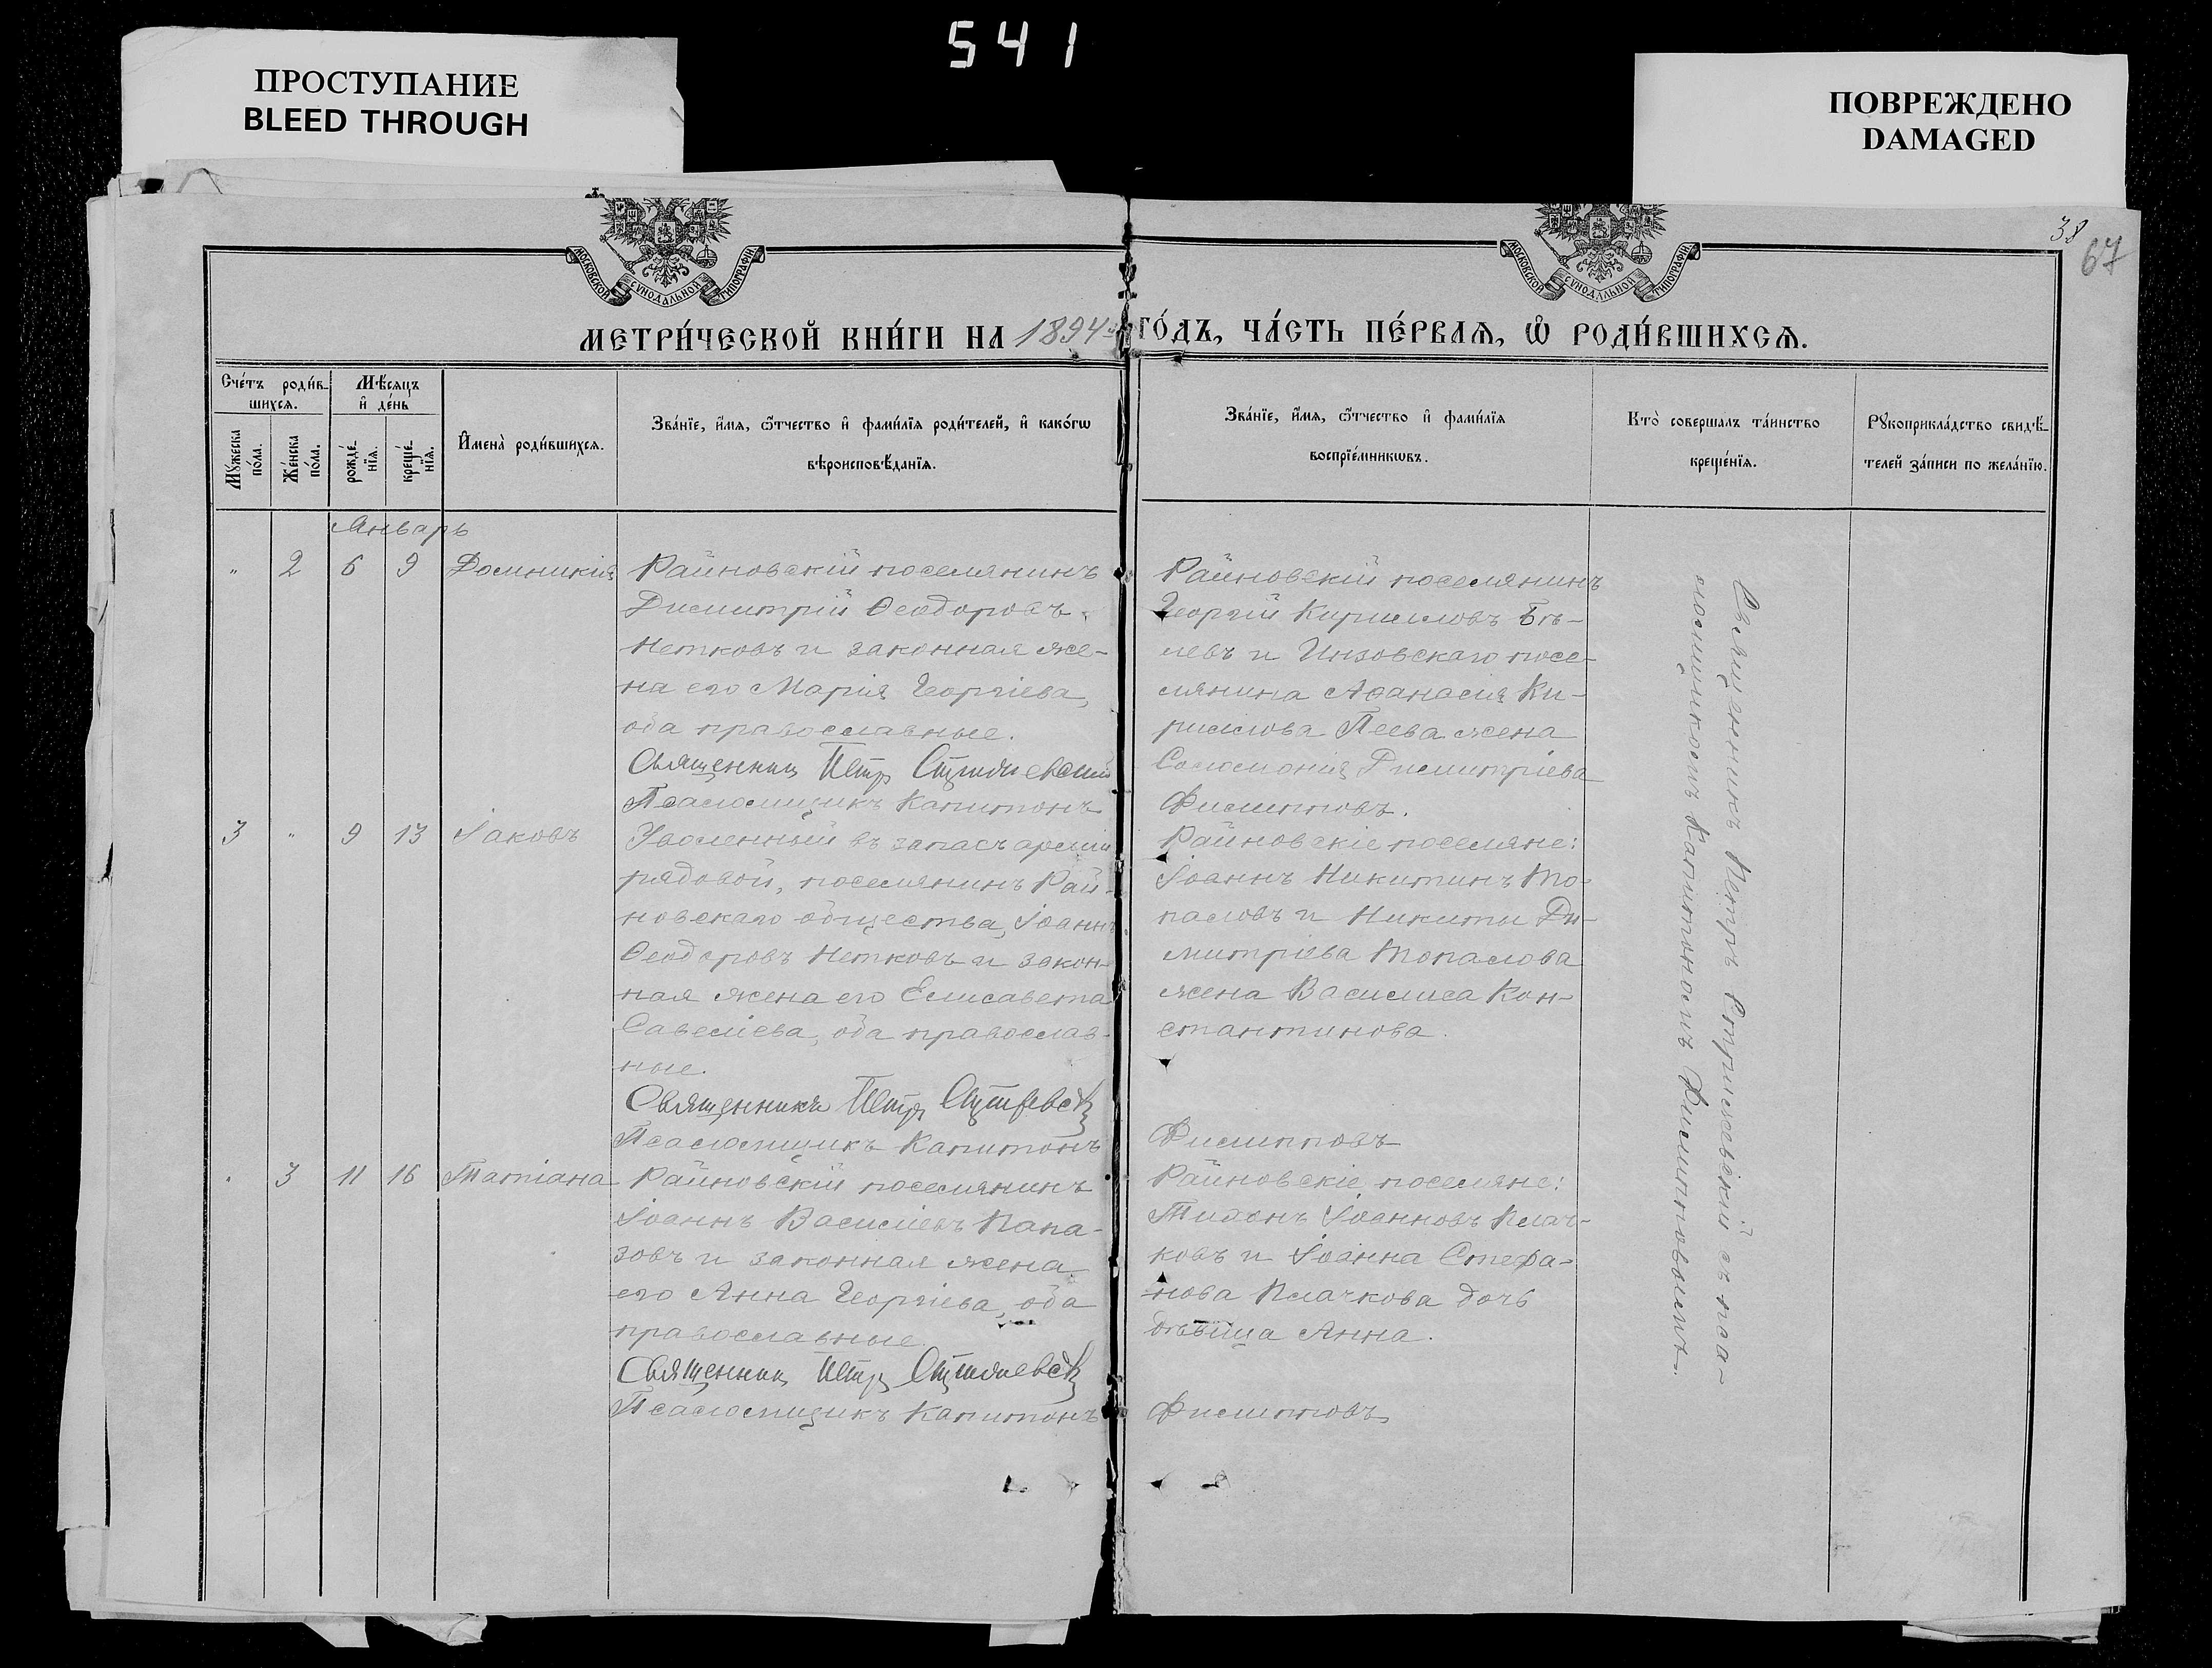 541
ПРОСТУПАНИЕ
BLEED THROUGH
ПОВРЕЖДЕНО
DAMAGED
38
67
МОСКОВСКОЙ СѴНОДАЛЬНОЙ ТИПОГРАФІИ
МОСКОВСКОЙ СѴНОДАЛЬНОЙ ТИПОГРАФІИ
МЕТРИ́ЧЕСКОЙ КНИ́ГИ НА 1894 ГО́ДЪ, ЧА́СТЬ ПЕ́РВАѦ, Ѿ РОДИ́ВШИХСѦ.
Сче́тъ роди́в-
шихсѧ.
Мꙋ́жеска по́ла.
Же́нска по́ла.
Мѣ́сѧцъ
и҆ де́нь
рожде́нїѧ.
креще́нїѧ.
И҆мена̀ роди́вшихсѧ.
Зва́нїе, и҆́мѧ, ѻ҆́тчество и҆ фами́лїѧ роди́телей, и҆ како́гѡ
вѣроисповѣ́данїѧ.
Зва́нїе, и҆́мѧ, ѻ҆́тчество и҆ фами́лїѧ
воспрїе́мникѡвъ.
Кто̀ соверша́лъ та́инство
креще́нїѧ.
Рꙋкоприкла́дство свидѣ́-
телей за́писи по жела́нїю.
Январь
" 2 6 9 Домникія
Райновскій поселянинъ
Димитрій Ѳеодоровъ
Нетковъ и законная же-
на его Марія Георгіева,
оба православные.
Священникъ Петръ
Псаломщикъ Капитонъ
Райновскій поселянинъ
Георгій Кирилловъ Бѣ-
левъ и Инзовскаго посе-
лянина Аѳанасія Ки-
риллова Пеева жена
Соломонія Димитріева
Филипповъ.
3 " 9 13 Іаковъ
Уволенный въ запасъ арміи
рядовой, поселянинъ Рай-
новскаго общества, Іоаннъ
Ѳеодоровъ Нетковъ и закон-
ная жена его Елисавета
Савеліева, оба православ-
ные.
Священникъ Петръ
Псаломщикъ Капитонъ
Райновскіе поселяне:
Іоаннъ Никитинъ То-
паловъ и Никиты Ди-
митріева Топалова
жена Василиса Кон-
стантинова.
Филипповъ
" 3 11 16 Татіана
Райновскій поселянинъ
Іоаннъ Василіевъ Папа-
зовъ и законная жена
его Анна Георгіева, оба
православные.
Священникъ Петръ
Псаломщикъ Капитонъ
Райновскіе поселяне:
Тихонъ Іоанновъ Плач-
ковъ и Іоанна Стефа-
нова Плачкова дочь
дѣвица Анна.
Филипповъ
Священникъ Петръ съ пса-
ломщикомъ Капитономъ Филипповымъ.